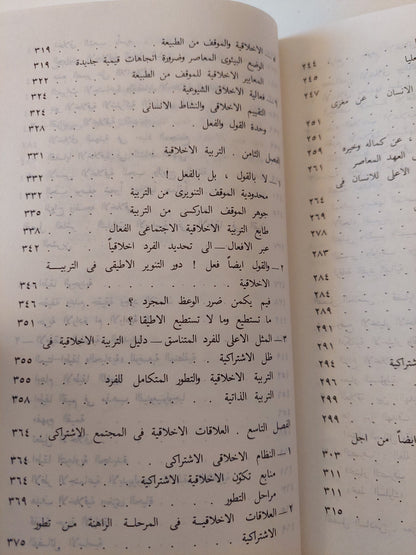 عليا
٢٤٤ . . .
٢٤٥ .
الانسان ، عن مغزى
٢٤٧ . . .
٢٥١ . . .
٢٥١ .
، عن كماله وخيره
العهد المعاصر
٢٦١ . . .
الاعلى للانسان فى
٢٦٨ . . .
٢٧٨ . . .
٢٧٩ . . .
. . .
٢٨٣ . . .
٢٨٤ . . .
٢٩١ . . .
٢٩٤ . . .
اشتراكية
٢٩٦ . . .
٢٩٩ . . .
٢٩٩ .
ايضاً من اجل
٣٠٣ . . .
٣١١ . . .
٣١١ . . .
٣١٥ . . .
الاخلاقية والموقف من الطبيعة . . . ٣١٩
الوضع البيئوى المعاصر وضرورة اتجاهات قيمية جديدة ٣١٩
المعايير الاخلاقية للموقف من الطبيعة . . ٣٢٢
فعالية الاخلاق الشيوعية . . . ٣٢٤
التقييم الاخلاقى والنشاط الانسانى . . ٣٢٤
وحدة القول والفعل . . . . ٣٢٨
الفصل الثامن . التربية الاخلاقية . . . ٣٣١
١ — لا بالقول ، بل بالفعل ! . . . ٣٣٢
محدودية الموقف التنويرى من التربية . . ٣٣٢
جوهر الموقف الماركسى من التربية . . ٣٣٥
طابع التربية الاخلاقية الاجتماعى الفعال . . ٣٣٨
عبر الافعال — الى تحديد الفرد اخلاقياً . . ٣٤٢
٢ — والقول ايضاً فعل ! دور التنوير الاطيقى فى التربيـــة
الاخلاقية . . . . . ٣٤٦
فيم يكمن ضرر الوعظ المجرد ؟ . . . ٣٤٦
ما تستطيع وما لا تستطيع الاطيقا ؟ . . ٣٥١
٣ — المثل الاعلى للفرد المتناسق — دليل التربية الاخلاقية فى
ظل الاشتراكية . . . . ٣٥٥
التربية الاخلاقية والتطور المتكامل للفرد . . ٣٥٥
التربية الذاتية . . . . ٣٥٨
الفصل التاسع . العلاقات الاخلاقية فى المجتمع الاشتراكى . ٣٦٤
١ — النظام الاخلاقى الاشتراكى . . . ٣٦٤
منابع تكوّن الاخلاقية الاشتراكية . . ٣٦٤
مراحل التطور . . . . ٣٦٩
٢ — العلاقات الاخلاقيــة فى المرحلــة الراهنة مـن تطور
الاشتراكية . . . . . ٣٧٥